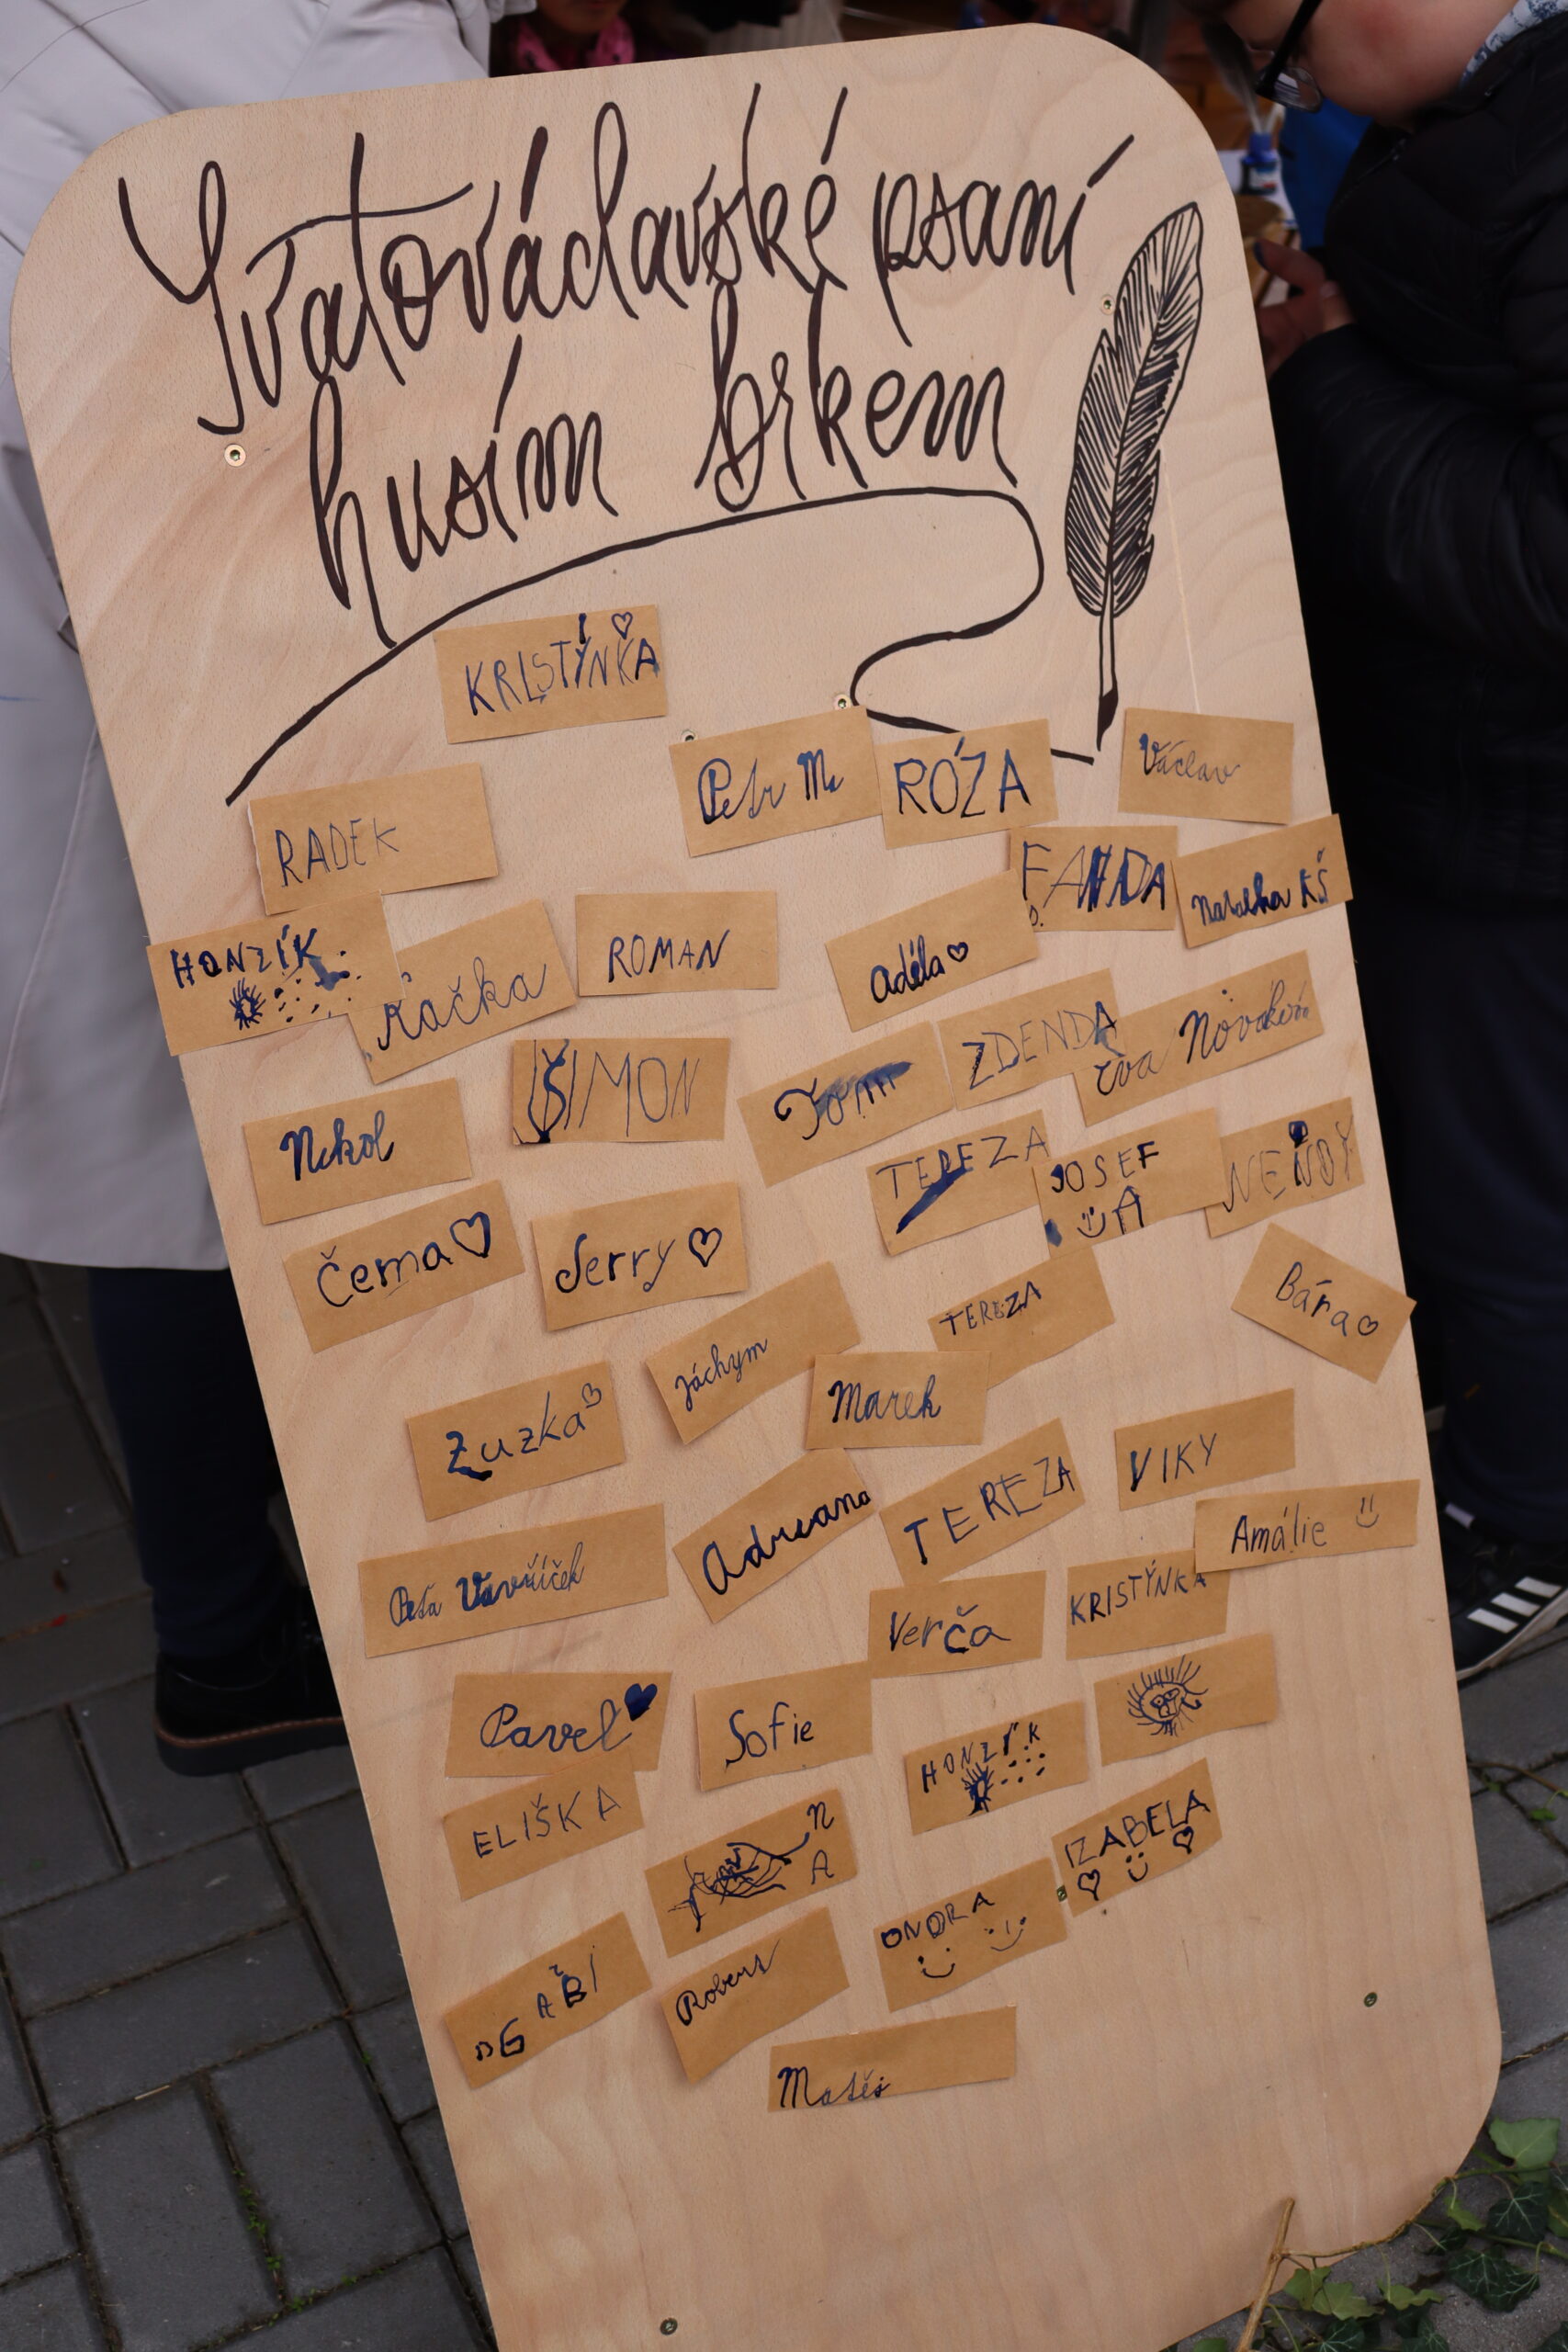 Svatováclavské psaní
husím brkem
KRISTÝNKA
Petr M.
RÓZA
Václav
RADEK
FANDA
Natalka KŠ
HONZÍK
Kačka
ROMAN
Adéla
ŠIMON
Tom
ZDENDA
Eva Nováková
Nikol
TEREZA
JOSEF
A
Čema
Jerry
Jáchym
TEREZA
Bára
Zuzka
Marek
VIKY
Adreana
TEREZA
Amálie
Peťa Vavříček
Verča
KRISTÝNKA
Pavel
Sofie
HONZÍK
ELIŠKA
N
A
IZABELA
ONDRA
Robert
Matěj